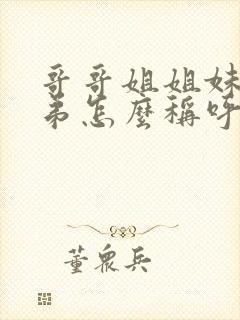 哥哥姐姐妹
弟怎麼稱呼
董眾兵